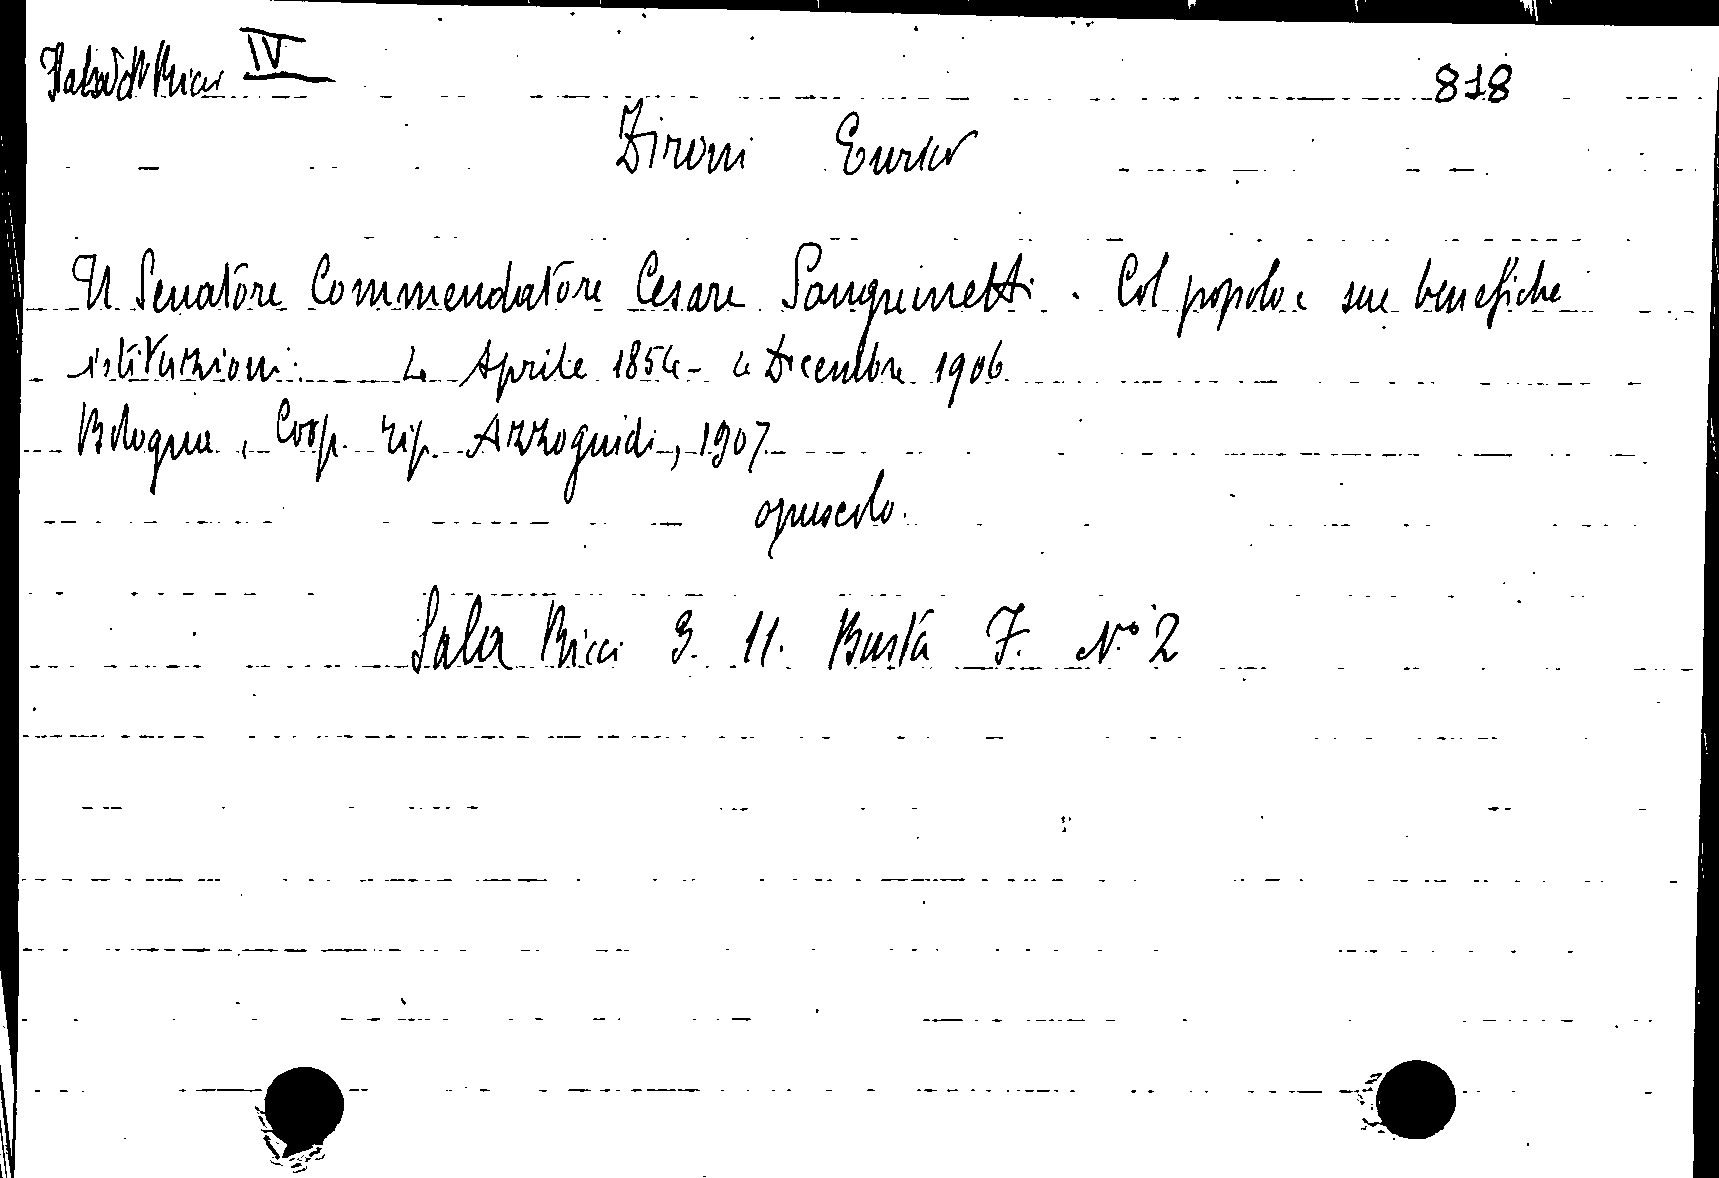 Ricci IV
818
Zironi Enrico
Il Senatore Commendatore Cesare Sanguinetti. Col popolo e sue benefiche
istituzioni. 4 Aprile 1854 - 4 Dicembre 1906
Bologna, Coop. Tip. Azzoguidi, 1907
opuscolo.
Sala Ricci 3. 11. Busta 7. N° 2